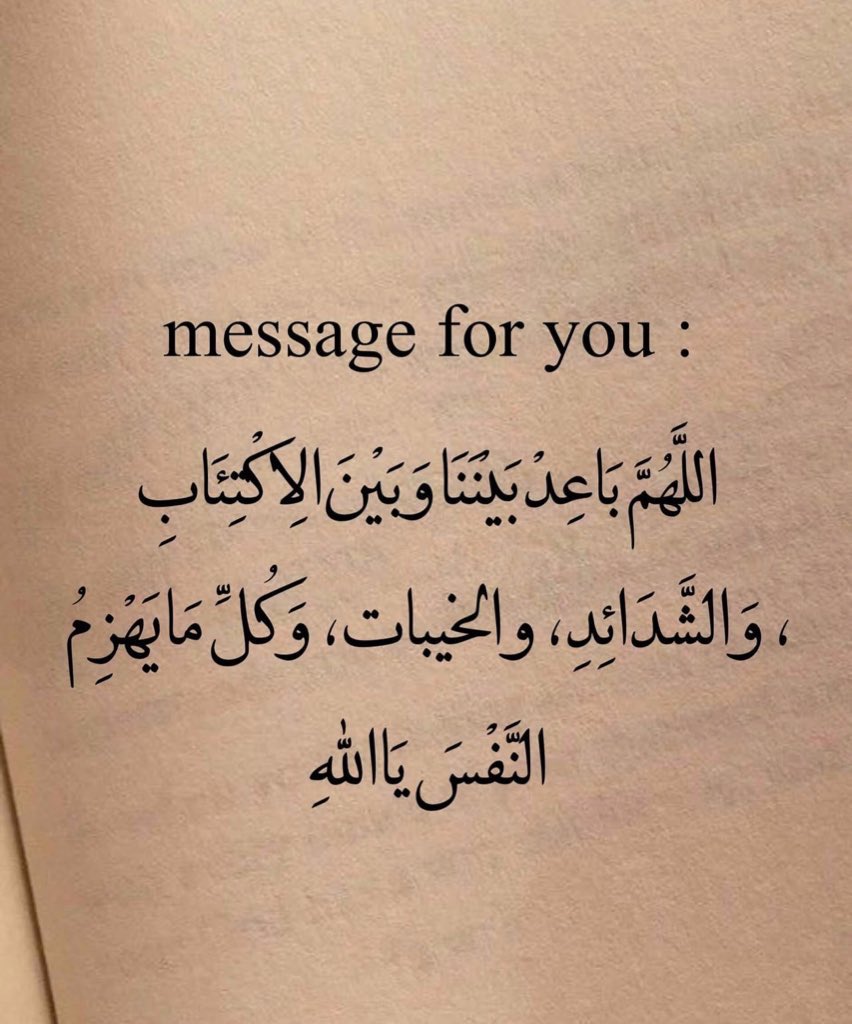 message for you :
اللَّهُمَّ بَاعِدْ بَيْنَنَا وَبَيْنَ الِاكْتِئَابِ
، وَالشَّدَائِدِ، والخيبات، وَكُلِّ مَا يَهْزِمُ
النَّفْسَ يَااللهِ